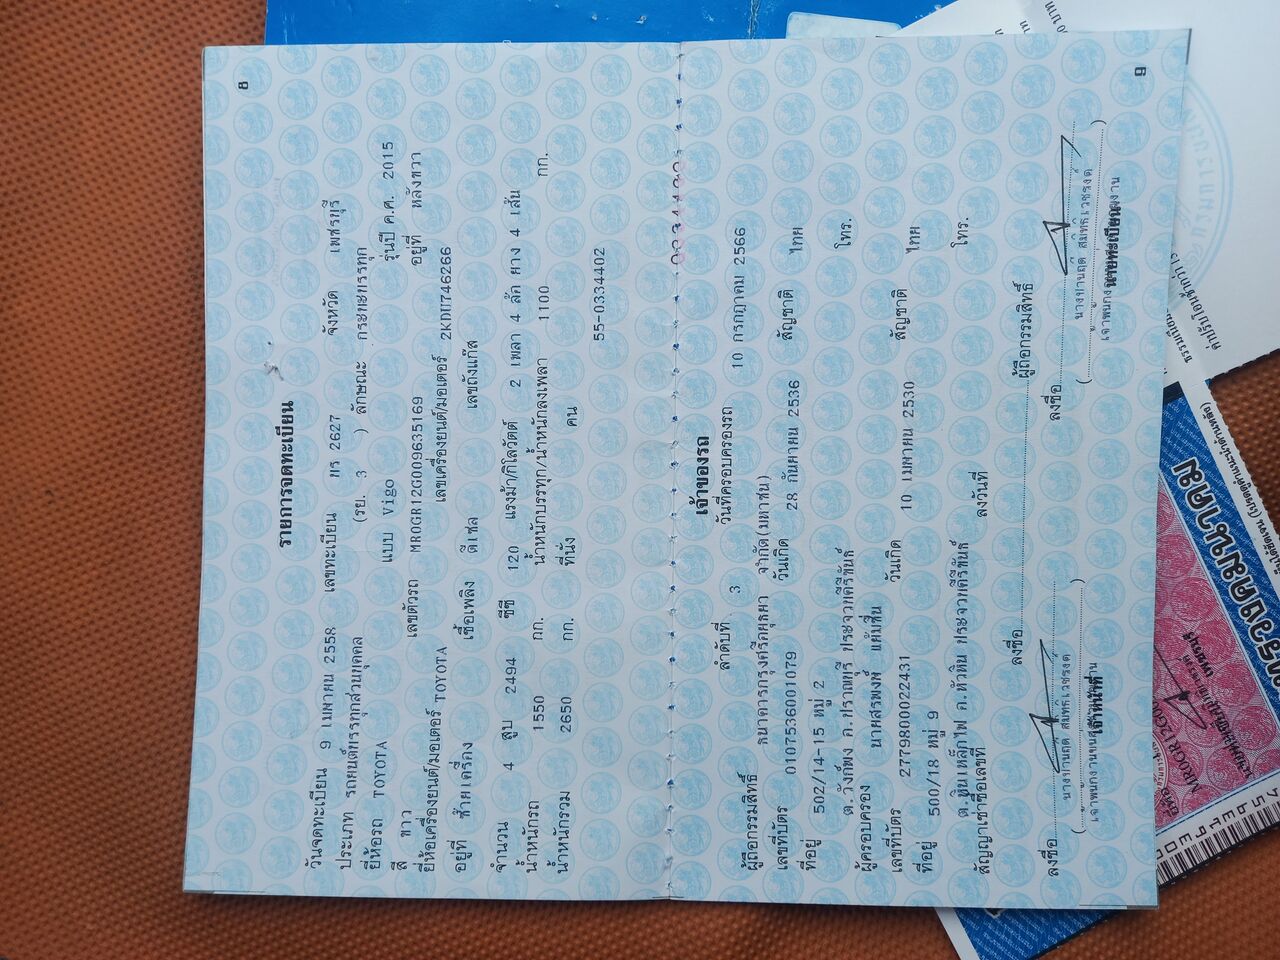 8
รายการจดทะเบียน
วันจดทะเบียน 9 เมษายน 2558 เลขทะเบียน บร 2627 จังหวัด เพชรบุรี
ประเภท รถยนต์บรรทุกส่วนบุคคล (รย. 3 ) ลักษณะ กระบะบรรทุก
ยี่ห้อรถ TOYOTA แบบ Vigo รุ่นปี ค.ศ. 2015
สี ขาว เลขตัวรถ MR0GR12G009635169 อยู่ที่ หลังขวา
ยี่ห้อเครื่องยนต์/มอเตอร์ TOYOTA เลขเครื่องยนต์/มอเตอร์ 2KDU746266
อยู่ที่ ซ้ายเครื่อง เชื้อเพลิง ดีเซล เลขถังแก๊ส
จำนวน 4 สูบ 2494 ซีซี 120 แรงม้า/กิโลวัตต์ 2 เพลา 4 ล้อ ยาง 4 เส้น
น้ำหนักรถ 1550 กก. น้ำหนักบรรทุก/น้ำหนักลงเพลา 1100 กก.
น้ำหนักรวม 2650 กก. ที่นั่ง คน
55-0334402
เจ้าของรถ
ลำดับที่ 3 วันที่ครอบครองรถ 10 กรกฎาคม 2566
ผู้ถือกรรมสิทธิ์ ธนาคารกรุงศรีอยุธยา จำกัด(มหาชน)
เลขที่บัตร 0107536001079 วันเกิด 28 กันยายน 2536 สัญชาติ ไทย
ที่อยู่ 502/14-15 หมู่ 2
ต.วังก์พง อ.ปราณบุรี ประจวบคีรีขันธ์ โทร.
ผู้ครอบครอง นายสรพงษ์ แย้มชื่น
เลขที่บัตร 2779800022431 วันเกิด 10 เมษายน 2530 สัญชาติ ไทย
ที่อยู่ 500/18 หมู่ 9
ต.หินเหล็กไฟ อ.หัวหิน ประจวบคีรีขันธ์ โทร.
สัญญาเช่าซื้อเลขที่ ลงวันที่
ลงชื่อ ผู้ถือกรรมสิทธิ์
ลงชื่อ ลงชื่อ
เจ้าหน้าที่ นายทะเบียน
9